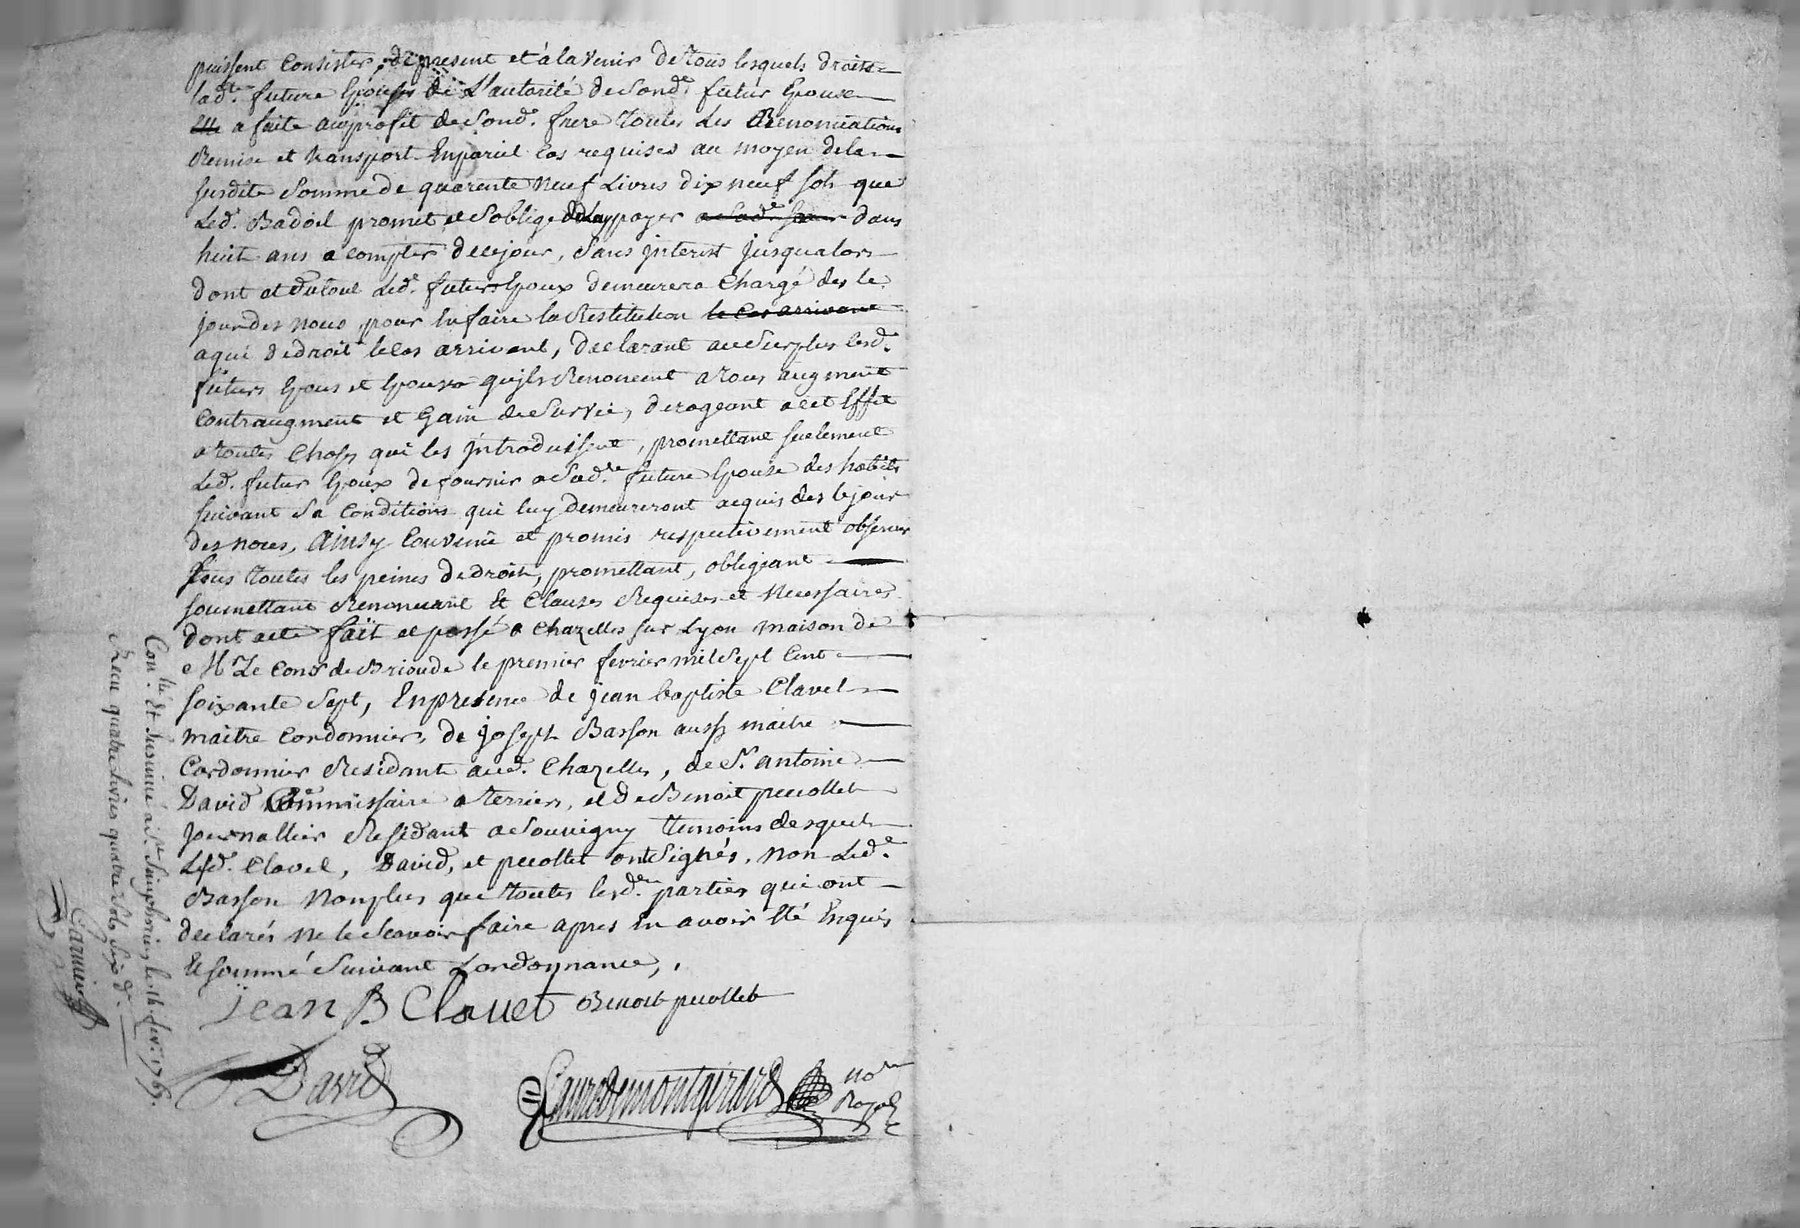 puissent consister, de present et à la venir de tous lesquels droits
lad.e future Epouse de L'autorité de Sond.t futur Epouse
a faite au profit de Sond. frere toutes Les Renonciations
Remise et transport En pareil Cas requises au moyen de la
susdite Somme de quarente neuf Livres dix neuf sols que
Led. Badoil promet et S'oblige de Luy payer a Sad.e Sœur dans
huit ans a compter de ce jour, Sans jnterest jusqualors
dont et du tout Led. futur Epoux demeurera Chargé des le
jour des noces pour En faire la Restitution le Cas arrivant
a qui de droit le Cas arrivant, declarant au Surplus lesd.
futurs Epous et Epouse qu'jls Renoncent a tous augment
Contraugment et Gain de Survie, derogeant a cet Effet
a toutes Choses qui les jntroduisent, promettant seulement
Led. futur Epoux de fournir a Sad.te future Epouse des habits
suivant Sa Conditions qui luy demeureront acquis des le jour
des noces, Ainsy Convenu et promis respectivement observer
sous toutes les peines de droit, promettant, obligeant
soumettant Renoncant Et Clauses Requises et Necessaires
dont acte fait et passé a Chazelles sur Lyon maison de
M.e Le Cons de Brioude le premier fevrier mil Sept Cent
soixante Sept, En presence de jean baptiste Clavel
maitre Cordonnier, de joseph Basson aussy maitre
Cordonnier Residants aud. Chazelles, de S.r antoine
David Commissaire a terriers, et de Benoit pecollet
journallier Residant a Souvigny temoins desquels
Lesd. Clavel, David, et pecollet ont Signés, non Led.
Basson Non plus que toutes lesd. parties qui ont
declarés ne le Scavoir faire apres En avoir Eté Enquis
Et sommé Suivant Lordonnance,
jean B Clavel Benoit pecollet
David
Caure de montgirard no.re
Royal
Con.llé Et Insinué à S.t Simphorien le 14 fev. 1767.
Recu quatre livres quatre sols six d.
Garnier